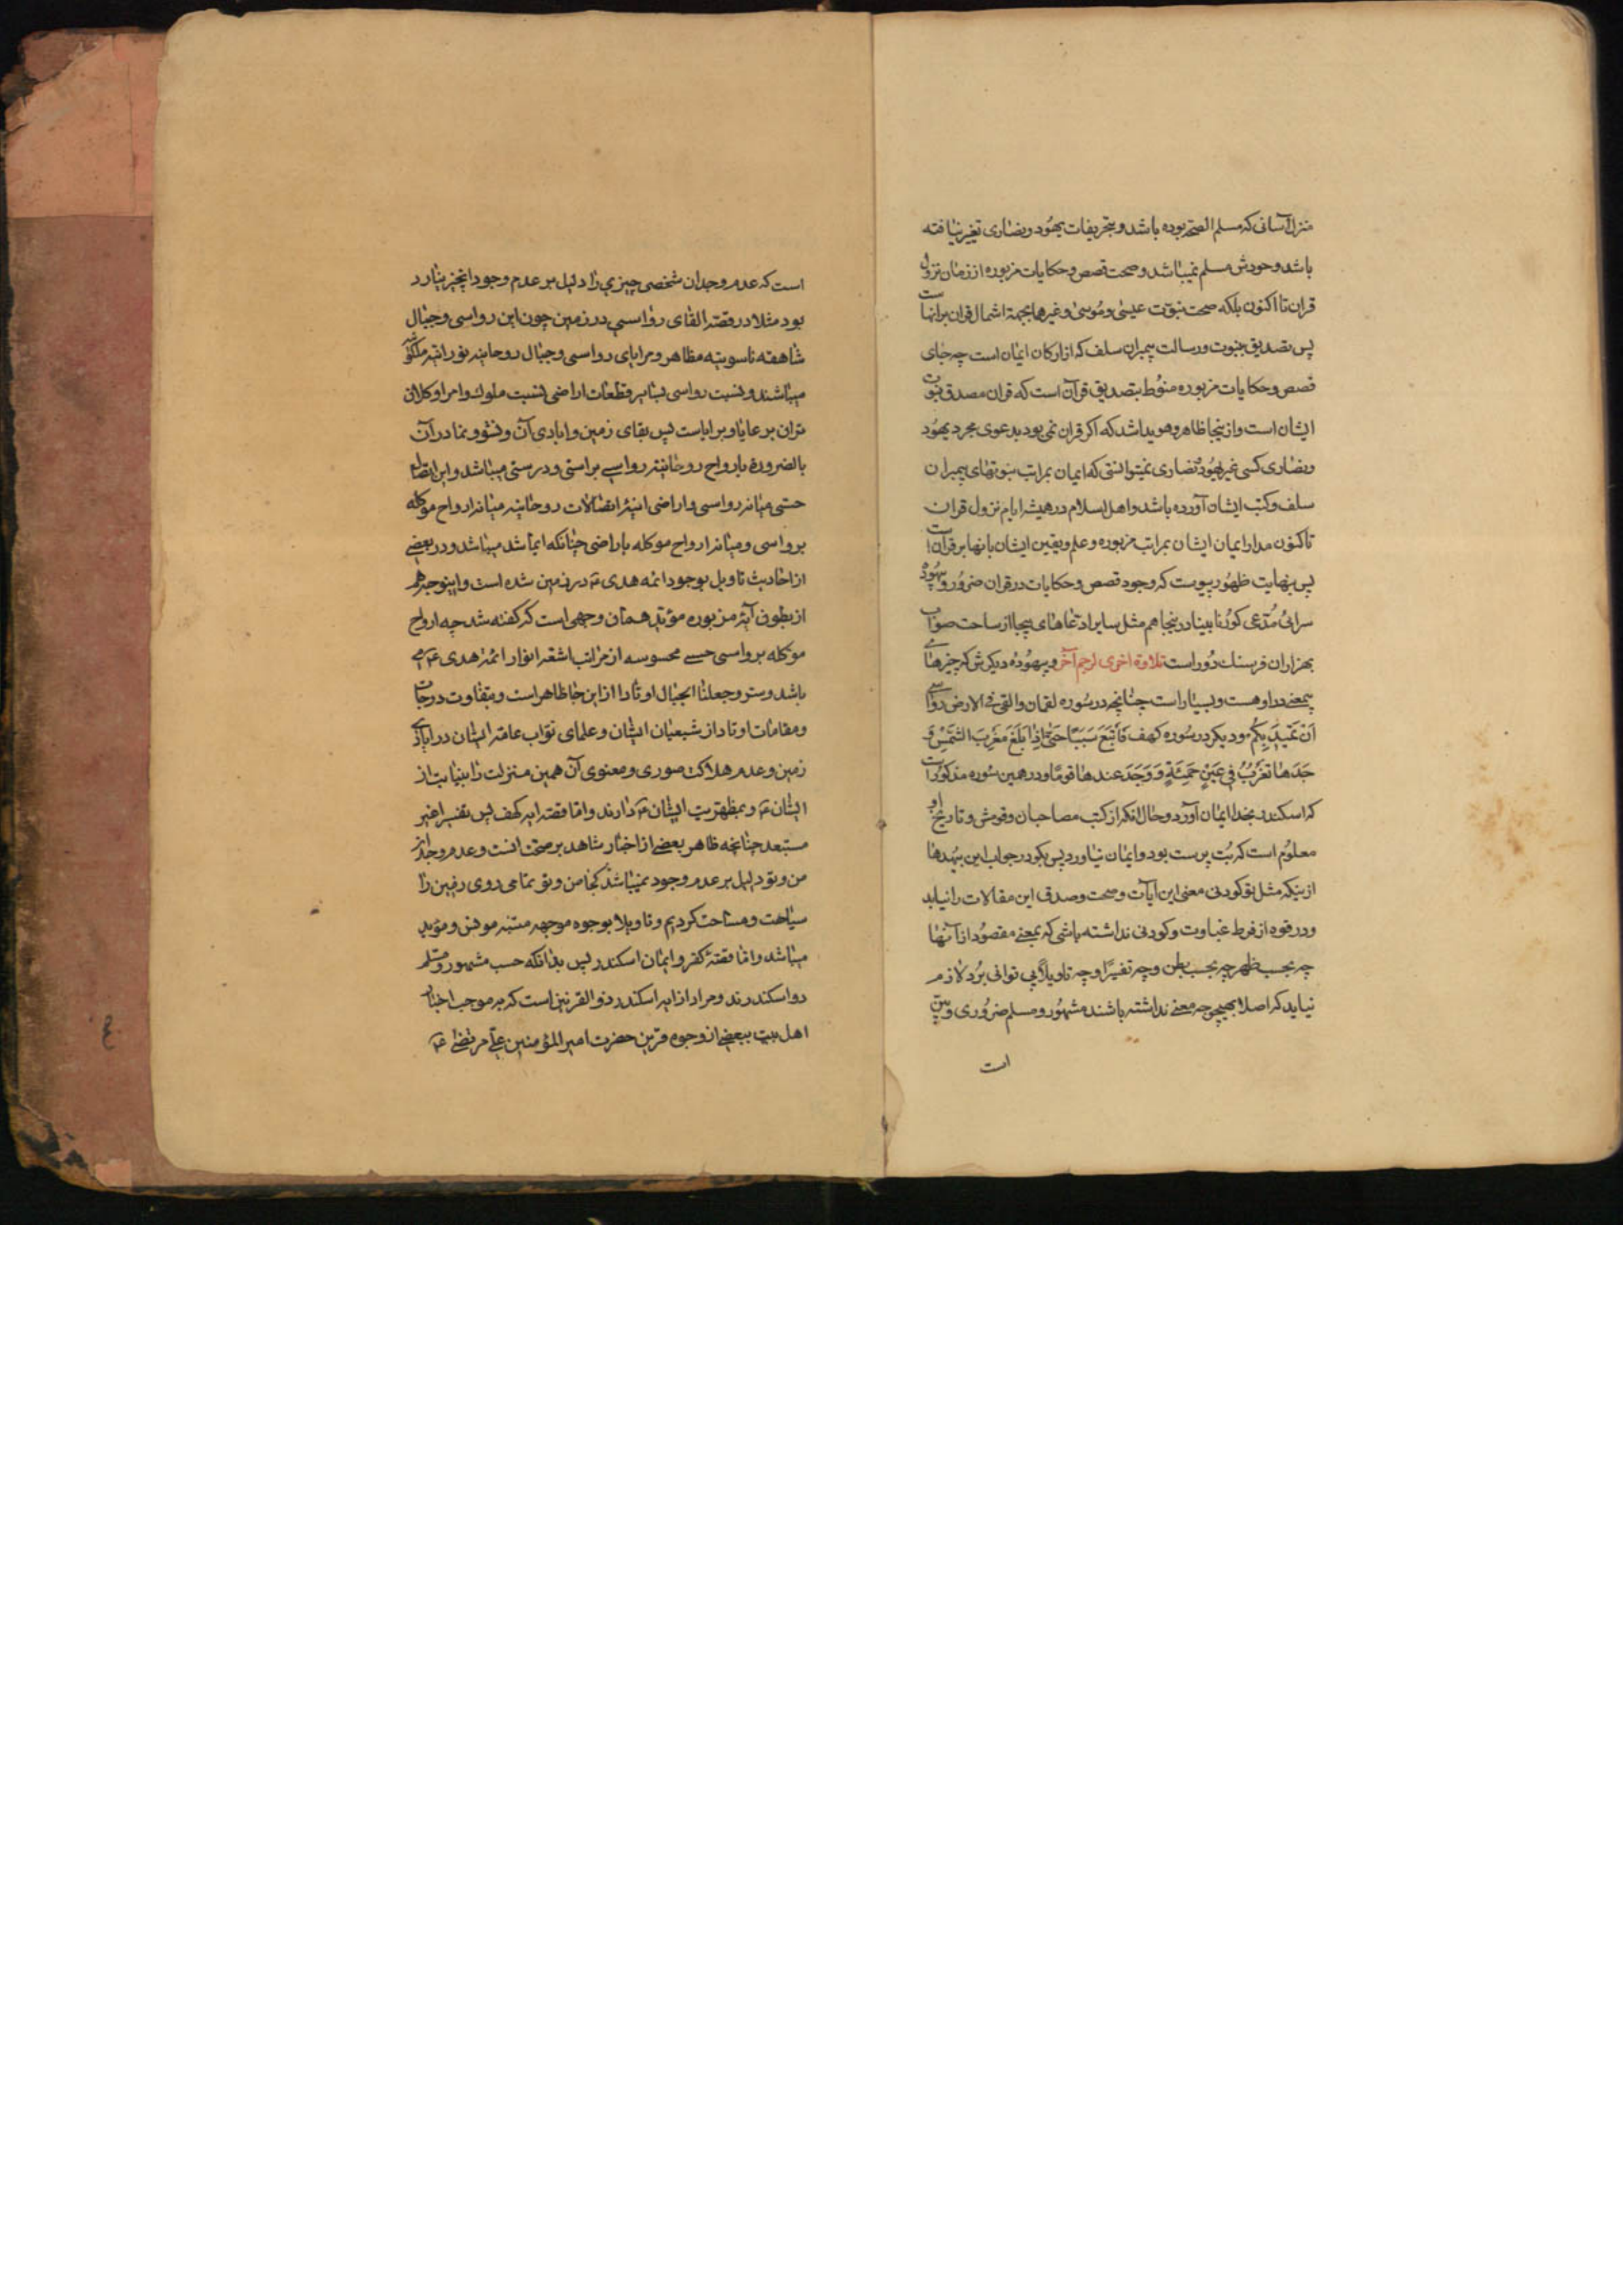 منزل آسانی که مسلم الصحه بوده باشد و بتحریفات یهود و نصاری تغیر نیافته
باشد وجودش مسلم نمیباشد و صحت قصص و حکایات مزبوره از زمان نزول
قران تا اکنون بلکه صحت نبوّت عیسی و موسی و غیرهما بجهة اشمال قران برانها است
پس تصدیق بنبوت و رسالت پیمبران سلف که از ارکان ایمان است چه جای
قصص و حکایات مزبوره منوط بتصدیق قرآن است که قران مصدق نبوت
ایشان است و از ینجا ظاهر و هویدا شد که اکر قران نمی بود بدعوی مجرد یهود
و نصاری کسی غیر یهود و نصاری نمیتوانستی که ایمان بمراتب نبوتهای پیمبران
سلف و کتب ایشان آورده باشد و اهل اسلام در همیشه ایام نزول قران
تا کنون مدار ایمان ایشان بمراتب مزبوره و علم و یقین ایشان بانها بر قران است
پس بنهایت ظهور پیوست که وجود قصص و حکایات در قران ضرور و بیهوده
سرائی مدّعی کور نابینا در ینجا هم مثل سایر ادعاهای بیجا از ساحت صواب
بهزاران فرسنك دور است تلاوة اخری لرجم آخر و بیهوده دیکرش که چیزهای
بیمعنی در او هست و بسیار است چنانچه در سوره لقمان و القی فی الارض رواسی
اَنْ تَمیدَ بِکُم و دیکر در سوره کهف فَاَتْبَعَ سَبَبًا حَتّی اِذا بَلَغَ مَغْرِبَ الشّمسِ وَ
جَدَها تَغْرُبُ فی عَیْنٍ حَمِئَةٍ وَ وَجَدَ عندها قومًا و در همین سوره مذکور است
که اسکندر بخدا ایمان آورد و حال انکه از کتب مصاحبان و قومش و تاریخ او
معلوم است که بت پرست بود و ایمان نیاورد پس بکو در جواب این بیهدها
ازینکه مثل تو کودنی معنی این آیات و صحت و صدق این مقالات را نیابد
و در قوه از فرط غباوت و کودنی نداشته باشی که بمعنی مقصود از آنها
چه بحسب ظهر چه بحسب بطن و چه تفسیرًا و چه تاویلاً پی توانی برد لازم
نیاید که اصلا بهیچوجه معنی نداشته باشند مشهور و مسلم ضروری و بیّن
است
است که عدم وجدان شخصی چیزی را دلیل بر عدم وجود انچیز نیارد
بود مثلا در قصّه القای رواسی در زمین چون این رواسی و جبال
شاهقه ناسوتیه مظاهر و مرایای رواسی و جبال روحانیه نورانیه ملکوتیه
میباشند و نسبت رواسی بسایر قطعات اراضی نسبت ملوك و امرا و کلان
تران بر عایا و برایاست پس بقای زمین و ابادی آن و نشو و نما در آن
بالضرورة بارواح روحانیه رواسی براستی و درستی میباشد و این اتصال
حسی میانه رواسی و اراضی اینیه اتصالات روحانیه میانه ارواح موکله
برواسی و میانه ارواح موکله باراضی چنانکه ایما شد میباشد و در بعضی
از احادیث تاویل بوجود ائمه هدی ع در زمین شده است و اینوجه هم
از بطون آیهٔ مزبوره مؤید همان وجهی است که کفته شد چه ارواح
موکله برواسی حسی محسوسه از مراتب اشعه انوار ائمه هدی ع می
باشد و سرّ و جعلنا الجبال اوتادا از این جا ظاهر است و بتفاوت درجات
و مقامات اوتاد از شیعیان ایشان و علمای نوّاب عامه ایشان در ابادی
زمین و عدم هلاکت صوری و معنوی آن همین منزلت را بنیابت از
ایشان ع و بمظهریت ایشان ع دارند و امّا قصّه ایه کهف پس تفسیرا غیر
مستبعد چنانچه ظاهر بعضی از اخبار شاهد بر صحّت انست و عدم وجدان
من و تو دلیل بر عدم وجود نمیباشد کجا من و تو تمامی روی زمین را
سیاحت و مساحت کردیم و تاویلا بوجوه موجهه متینه موفق و مؤید
میباشد و امّا قصّهٔ کفر و ایمان اسکندر پس بدانکه حسب مشهور و مسلم
دو اسکندرند و مراد از ایه اسکندر ذو القرنین است که بر موجب اخبار
اهل بیت ببعضی از وجوه قرین حضرت امیر المؤمنین علی مرتضی ع